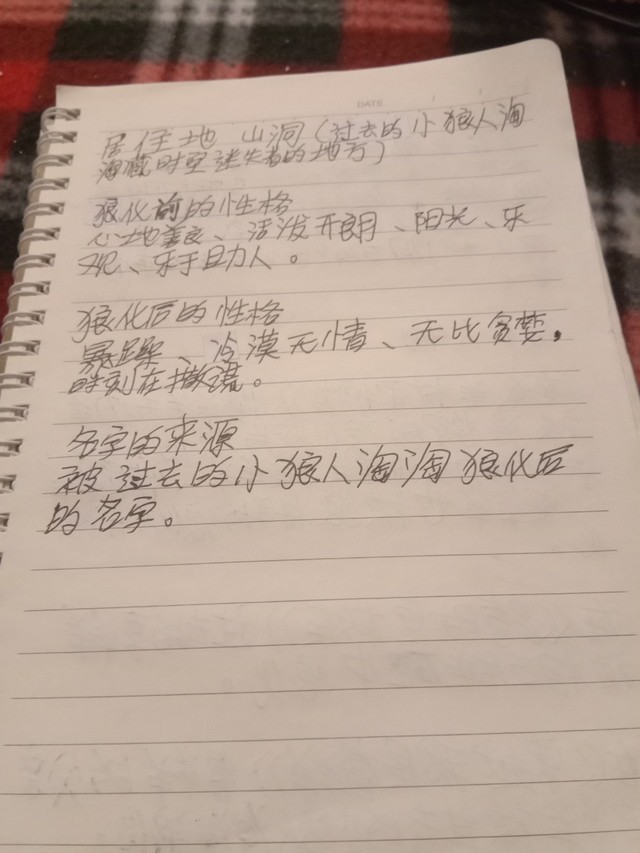 DATE
居住地 山洞（过去的小狼人淘
淘藏时空迷失者的地方）
狼化前的性格
心地善良、活泼开朗、阳光、乐
观、乐于助人。
狼化后的性格
暴躁、冷漠无情、无比贪婪，
时刻在撒谎。
名字的来源
被过去的小狼人淘淘狼化后
的名字。